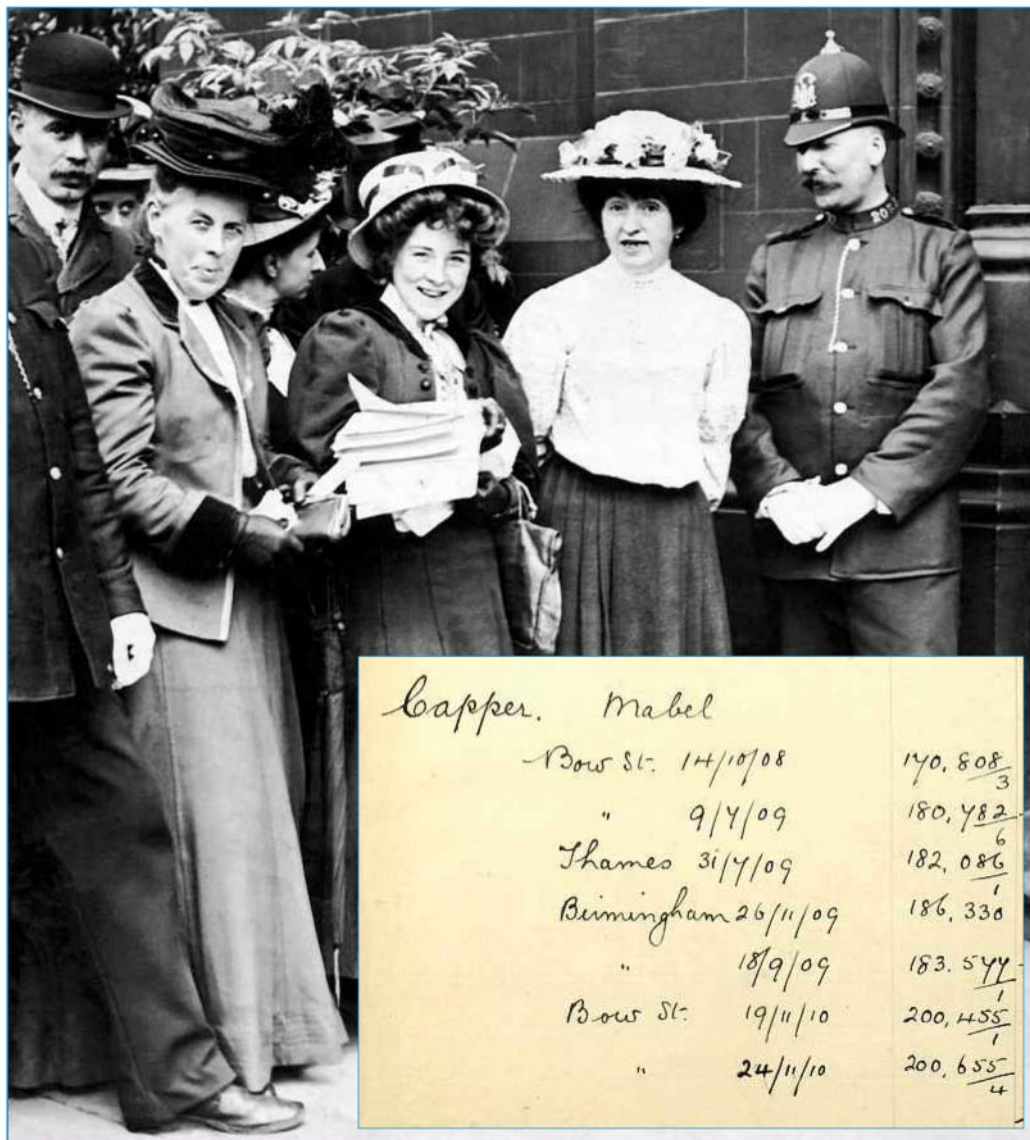 20
Capper. Mabel
Bow St. 14/10/08 170,808/3
" 9/7/09 180,782/6
Thames 31/7/09 182,086/1
Birmingham 26/11/09 186,330
" 18/9/09 183.577/1
Bow St. 19/11/10 200,455/1
" 24/11/10 200,655/4